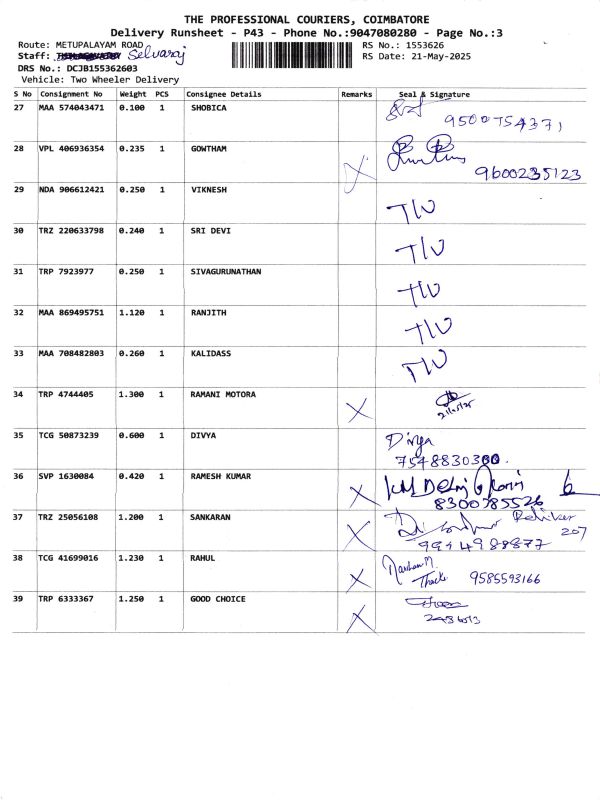 THE PROFESSIONAL COURIERS, COIMBATORE
Delivery Runsheet - P43 - Phone No.:9047080280 - Page No.:3
Route: METUPALAYAM ROAD RS No.: 1553626
Staff: Selvaraj RS Date: 21-May-2025
DRS No.: DCJB155362603
Vehicle: Two Wheeler Delivery
S No Consignment No Weight PCS Consignee Details Remarks Seal & Signature
27 MAA 574043471 0.100 1 SHOBICA
9500754371
28 VPL 406936354 0.235 1 GOWTHAM
9600235123
29 NDA 906612421 0.250 1 VIKNESH T/U
30 TRZ 220633798 0.240 1 SRI DEVI T/U
31 TRP 7923977 0.250 1 SIVAGURUNATHAN T/U
32 MAA 869495751 1.120 1 RANJITH T/U
33 MAA 708482803 0.260 1 KALIDASS T/U
34 TRP 4744405 1.300 1 RAMANI MOTORA
35 TCG 50873239 0.600 1 DIVYA Divya
7548830300.
36 SVP 1630084 0.420 1 RAMESH KUMAR
8300785526
37 TRZ 25056108 1.200 1 SANKARAN
207
9944988877
38 TCG 41699016 1.230 1 RAHUL
9585593166
39 TRP 6333367 1.250 1 GOOD CHOICE